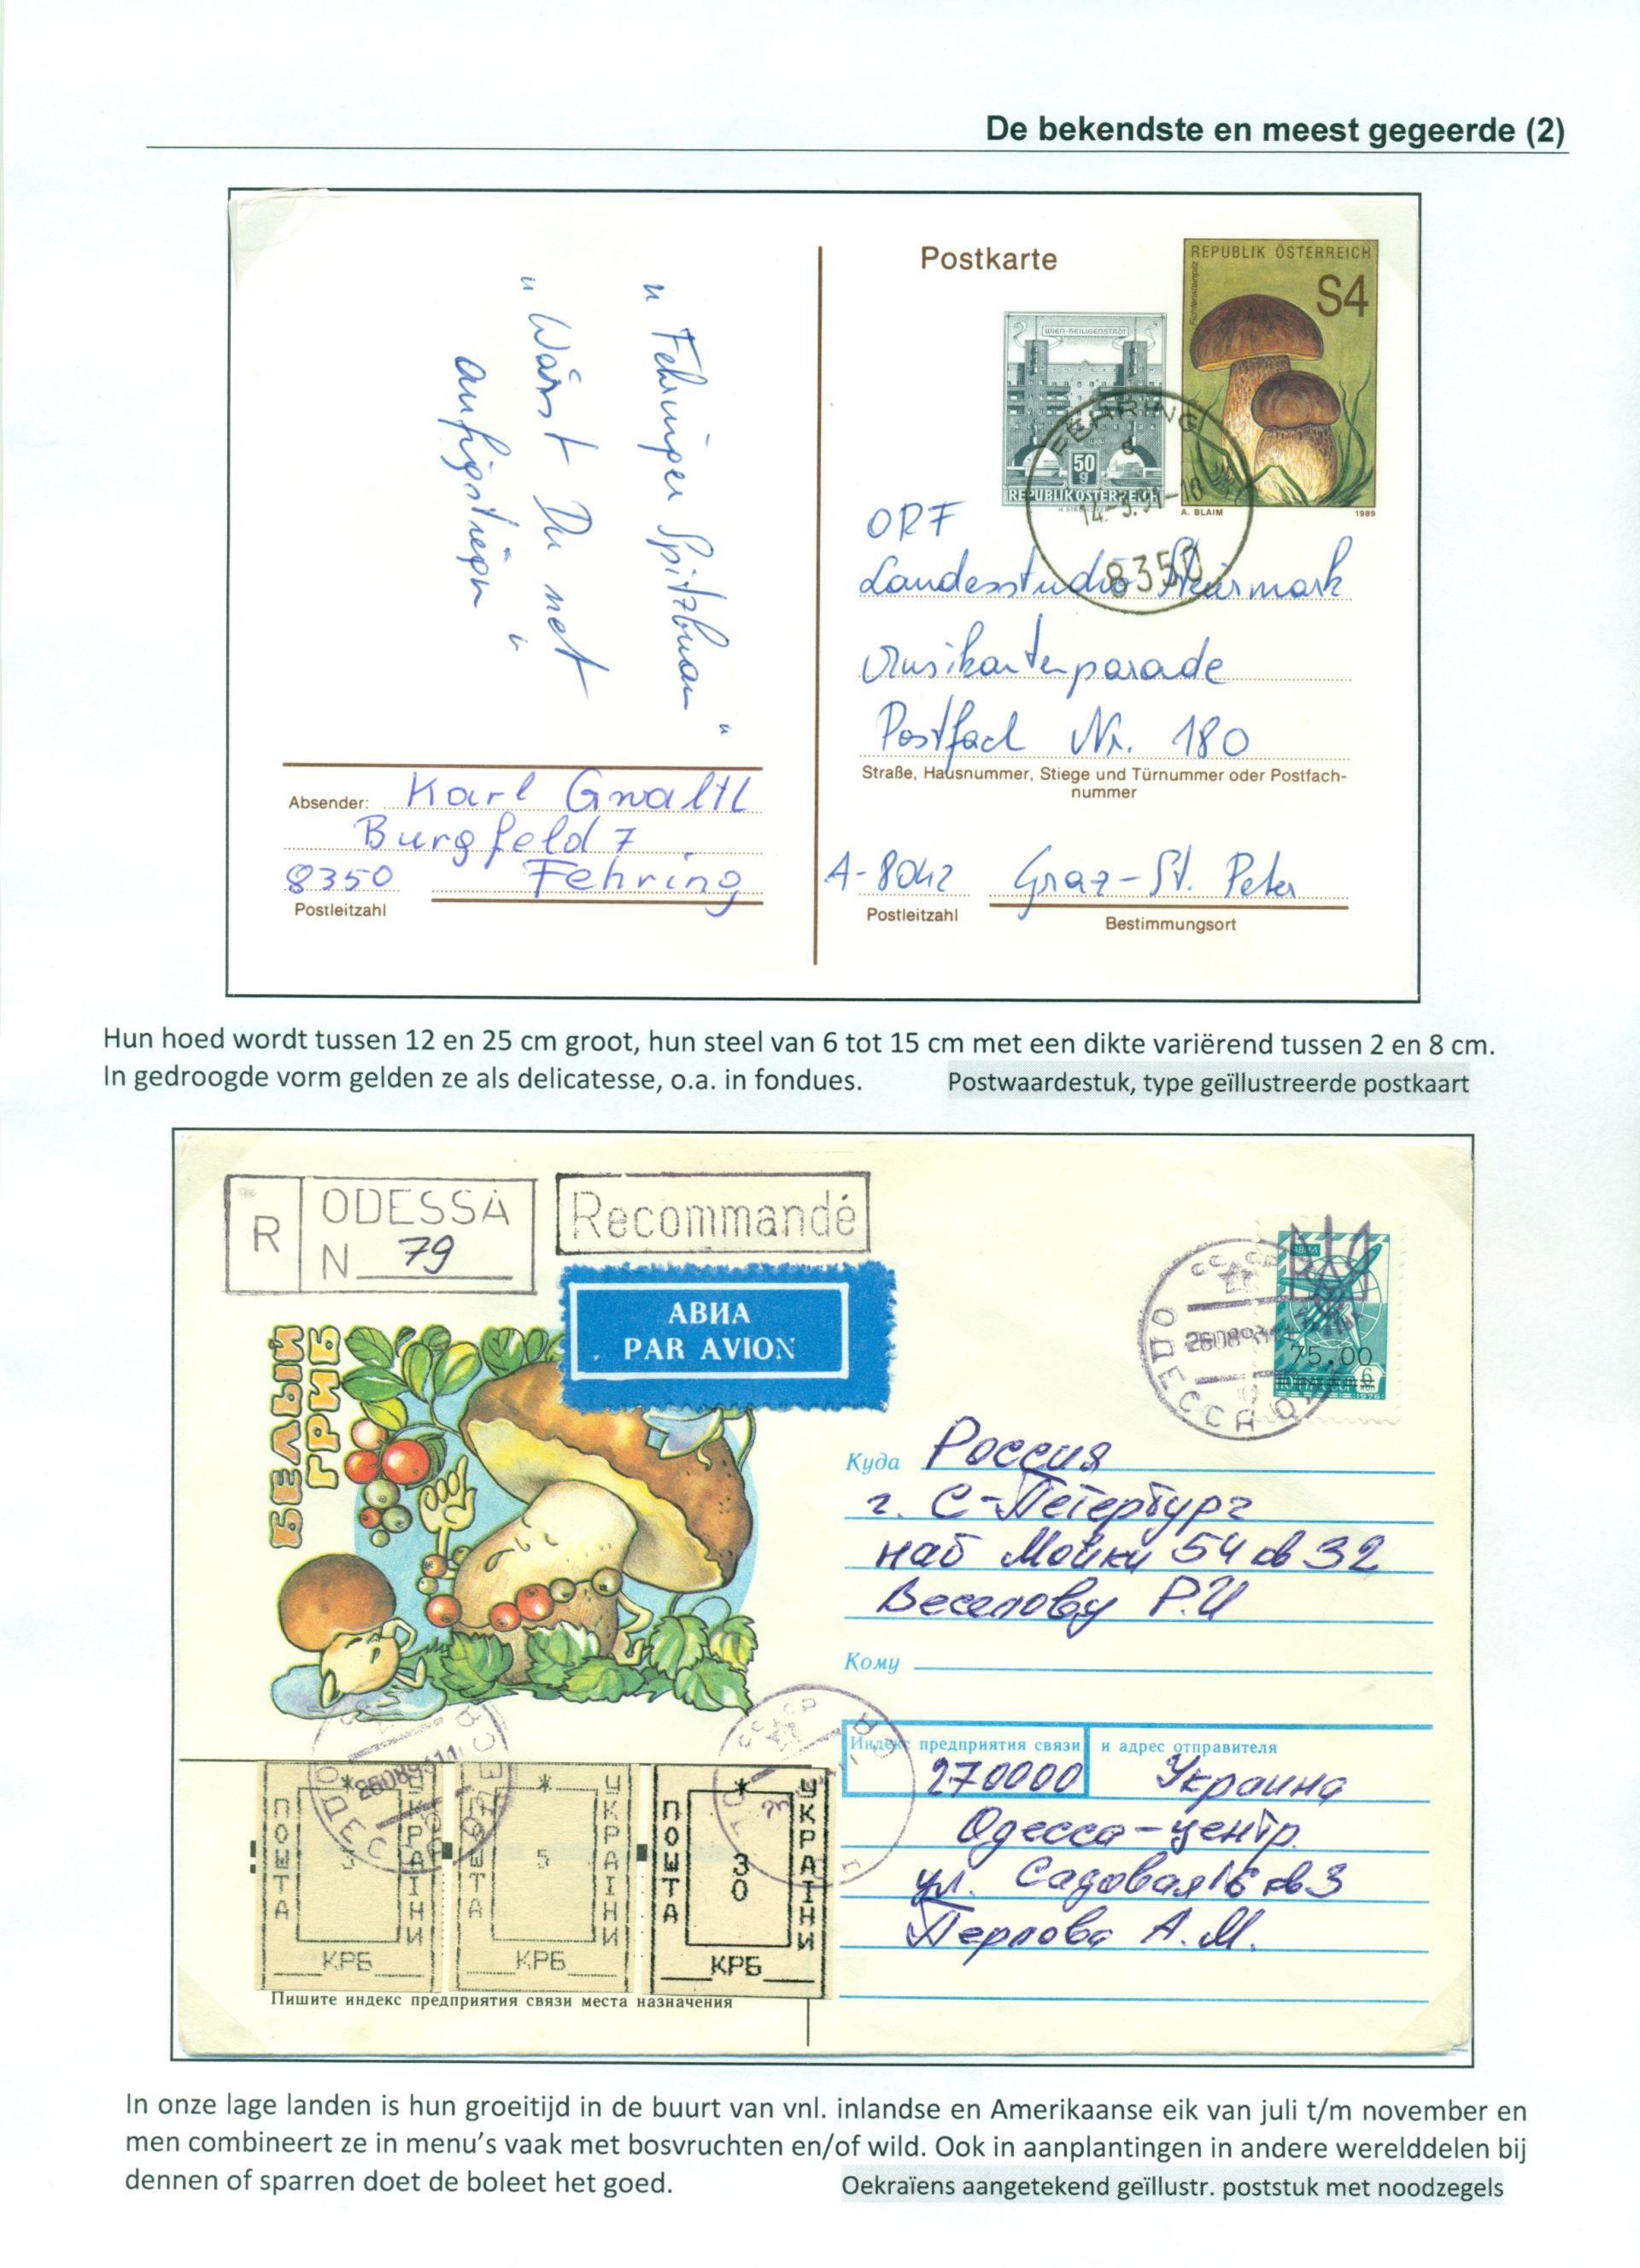 De bekendste en meest gegeerde (2)
Postkarte
REPUBLIK ÖSTERREICH
S4
WIEN-HEILIGENSTADT
50
g
REPUBLIK ÖSTERREICH
A. BLAIM
1989
FEHRING
14.-3.91-18
8350
" Fehringer Spitzbuam "
" Wärst Du net
aufigstiegn "
ORF
Landesstudio Steiermark
Musikantenparade
Postfach Nr. 180
Straße, Hausnummer, Stiege und Türnummer oder Postfach-
nummer
Absender: Karl Gwaltl
Burgfeld 7
8350 Fehring
Postleitzahl
A-8042 Graz-St. Peter
Postleitzahl Bestimmungsort
Hun hoed wordt tussen 12 en 25 cm groot, hun steel van 6 tot 15 cm met een dikte variërend tussen 2 en 8 cm.
In gedroogde vorm gelden ze als delicatesse, o.a. in fondues.
Postwaardestuk, type geïllustreerde postkaart
R ODESSA
N 79
Recommandé
АВИА
PAR AVION
БЕЛЫЙ
ГРИБ
АВИА
75.00
6
1976
СССР
ОДЕССА
Куда Россия
г. С-Петербург
наб Мойки 54 кв 32
Веселову Р.И
Кому
Индекс предприятия связи и адрес отправителя
270000 Украина
Одесса-центр.
ул. Садовая 16 кв 3
Перлова А.М.
ПОШТА * 5 УКРАIНИ
КРБ
ПОШТА * 5 УКРАIНИ
КРБ
ПОШТА * 30 УКРАIНИ
КРБ
Пишите индекс предприятия связи места назначения
In onze lage landen is hun groeitijd in de buurt van vnl. inlandse en Amerikaanse eik van juli t/m november en
men combineert ze in menu's vaak met bosvruchten en/of wild. Ook in aanplantingen in andere werelddelen bij
dennen of sparren doet de boleet het goed.
Oekraïens aangetekend geïllustr. poststuk met noodzegels